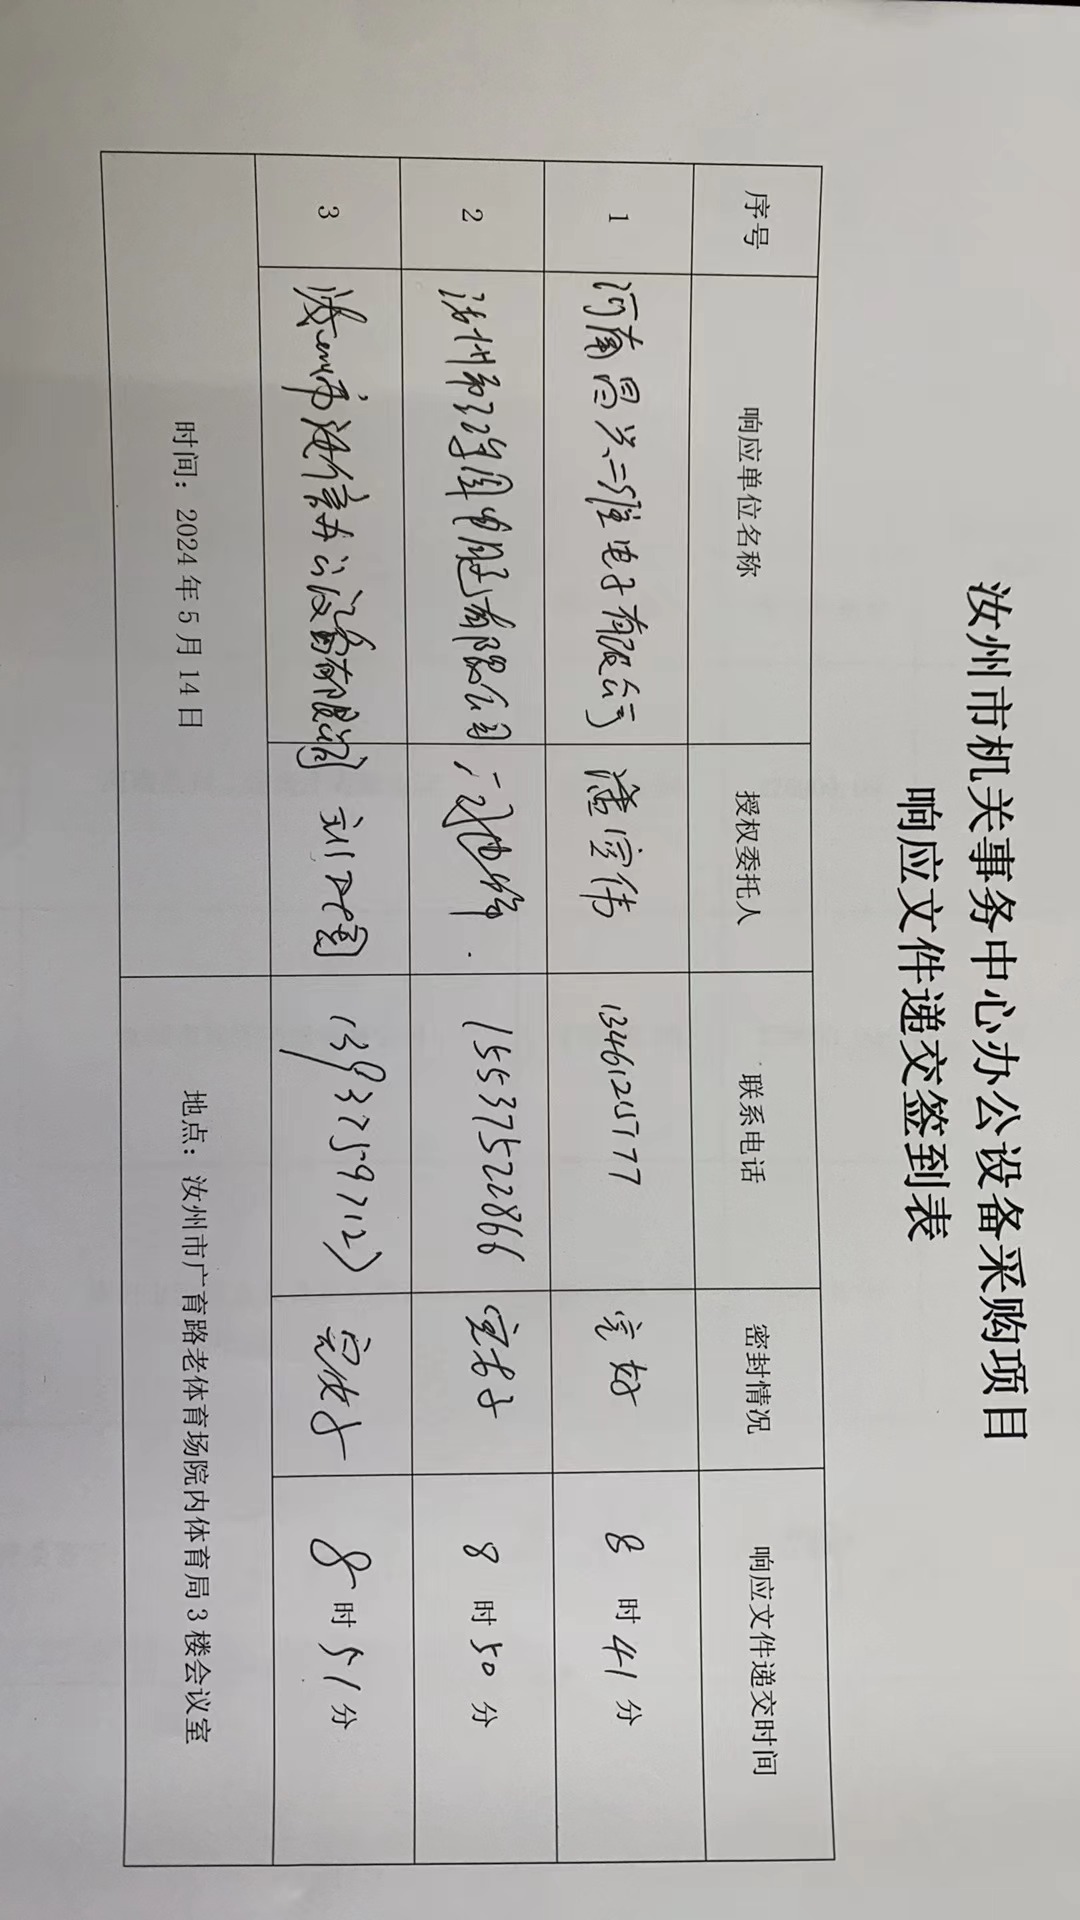 汝州市机关事务中心办公设备采购项目
响应文件递交签到表
序号 响应单位名称 授权委托人 联系电话 密封情况 响应文件递交时间
1 河南昌兴二维电子有限公司 潘宏伟 13461245777 完好 8时41分
2 汝州市 有限公司 15537522866 完好 8时50分
3 汝州市海信办公设备有限公司 刘 完好 8时51分
时间：2024年5月14日 地点：汝州市广育路老体育场院内体育局3楼会议室